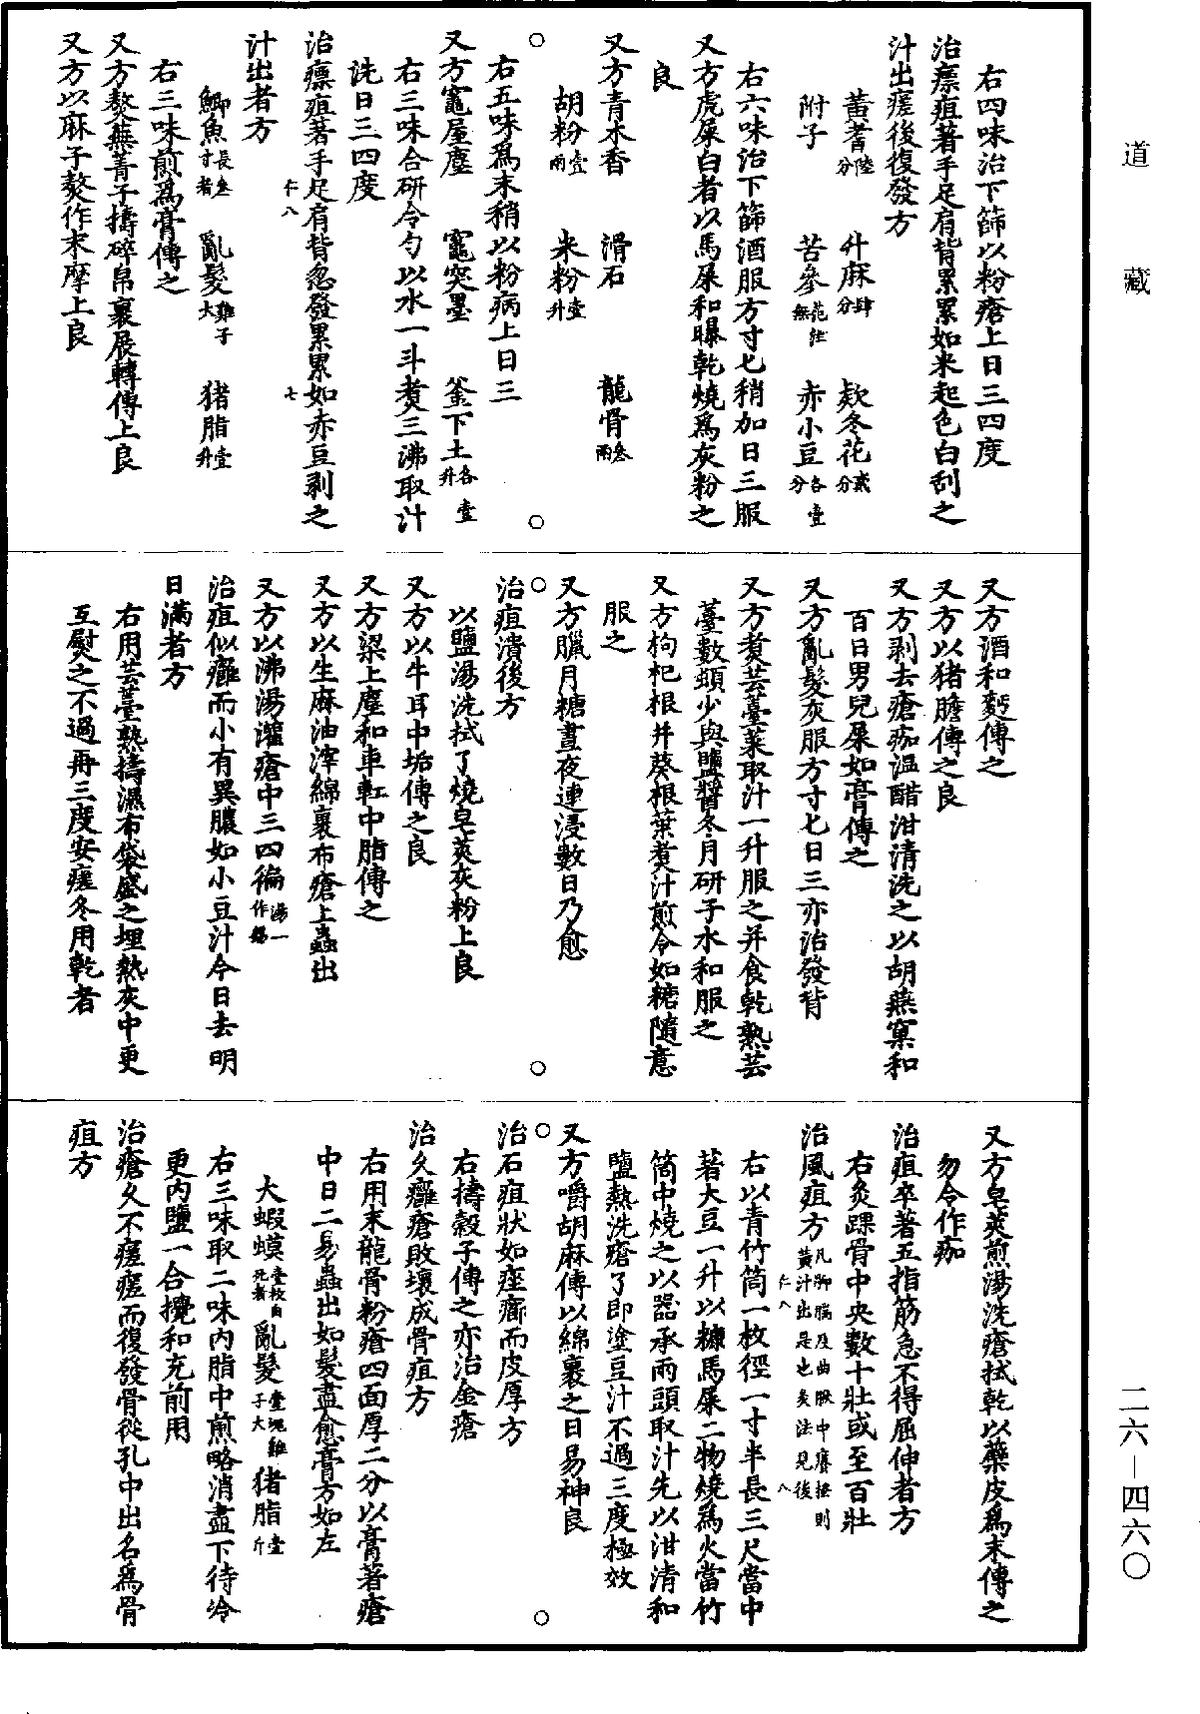 道藏
右四味治下篩以粉瘡上日三四度
治瘭疽著手足肩背累累如米起色白刮之
汁出瘥後復發方
黃耆陸分　升麻肆分　欵冬花貳分
附子　苦參范汪無　赤小豆各壹分
右六味治下篩酒服方寸匕稍加日三服
又方虎屎白者以馬屎和曝乾燒爲灰粉之
良
又方青木香　滑石　龍骨叁兩
胡粉壹兩　米粉壹升
右五味爲末稍以粉病上日三
又方竈屋塵　竈突墨　釜下土各壹升
右三味合研令勻以水一斗煑三沸取汁
洗日三四度
治瘭疽著手足肩背忽發累累如赤豆剥之
仁八　七
汁出者方
鯽魚長叁寸者　亂髮雞子大　猪脂壹升
右三味煎爲膏傅之
又方熬蕪菁子擣碎帛裹展轉傅上良
又方以麻子熬作末摩上良
又方酒和麪傅之
又方以猪膽傅之良
又方剥去瘡痂温醋泔清洗之以胡燕窠和
百日男兒屎如膏傅之
又方亂髮灰服方寸匕日三亦治發背
又方煑芸薹菜取汁一升服之并食乾熟芸
薹數頓少與鹽醬冬月研子水和服之
又方枸杞根井葵根葉煑汁煎令如糖隨意
服之
又方臘月糖晝夜連浸數日乃愈
治疽潰後方
以鹽湯洗拭了燒皂莢灰粉上良
又方以牛耳中垢傅之良
又方梁上塵和車釭中脂傅之
又方以生麻油滓綿裹布瘡上蟲出
又方以沸湯灌瘡中三四徧湯一作餳
治疽似癰而小有異膿如小豆汁今日去明
日滿者方
右用芸薹熟擣濕布袋盛之埋熱灰中更
互熨之不過再三度安瘥冬用乾者
又方皂莢煎湯洗瘡拭乾以蘗皮爲末傅之
勿令作痂
治疽卒著五指筋急不得屈伸者方
右灸踝骨中央數十壯或至百壯
治風疽方凡脚腨及曲䐐中癢搔則黃汁出是也灸法見後
仁八　八
右以青竹筒一枚徑一寸半長三尺當中
著大豆一升以糠馬屎二物燒爲火當竹
筒中燒之以器承兩頭取汁先以泔清和
鹽熱洗瘡了即塗豆汁不過三度極效
又方嚼胡麻傅以綿裹之日易神良
治石疽狀如痤癤而皮厚方
右擣穀子傅之亦治金瘡
治久癰瘡敗壞成骨疽方
右用末龍骨粉瘡四面厚二分以膏著瘡
中日二易蟲出如髮盡愈膏方如左
大蝦蟆壹枚自死者　亂髮壹塊雞子大　猪脂壹斤
右三味取二味内脂中煎略消盡下待冷
更内鹽一合攪和充前用
治瘡久不瘥瘥而復發骨從孔中出名爲骨
疽方
二六—四六〇